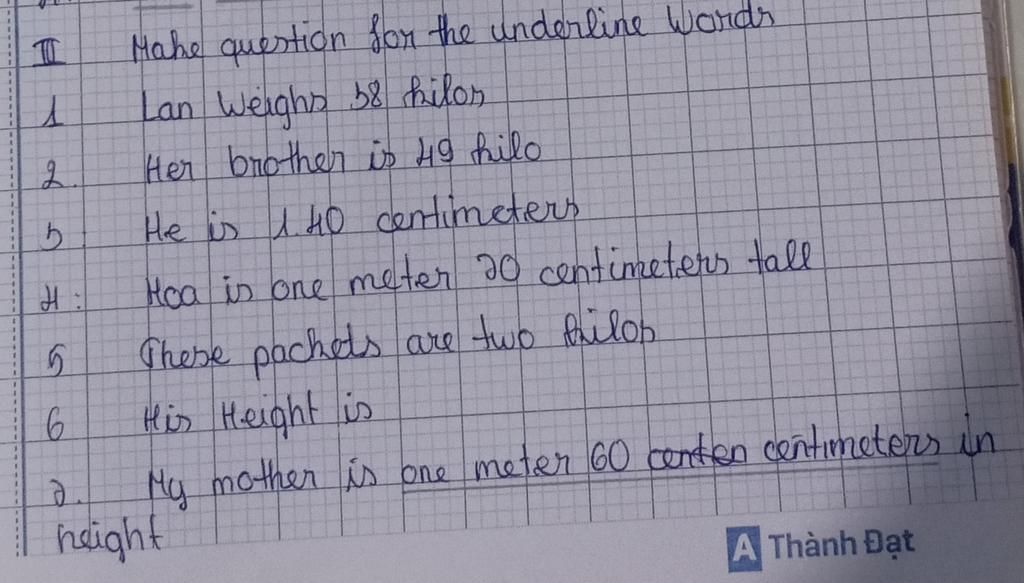 III Make question for the underline words
1 Lan Weighs 58 kilos
2. Her brother is 49 kilo
3 He is 1.40 centimeters
4: Hoa is one meter 20 centimeters tall
5 These packets are two kilos
6 His Height is
7. My mother is one meter 60 centen centimeters in
height
A Thành Đạt